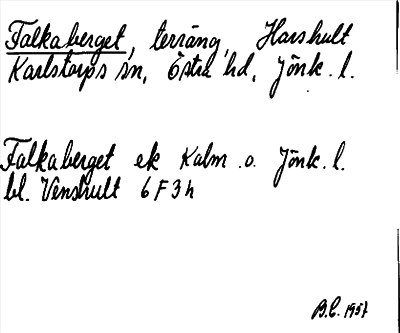 Falkaberget, terräng, Harshult
Karlstorps sn, Östra hd, Jönk. l.
Falkaberget ek Kalm. o. Jönk. l.
bl. Venshult 6F3h
B.E. 1957